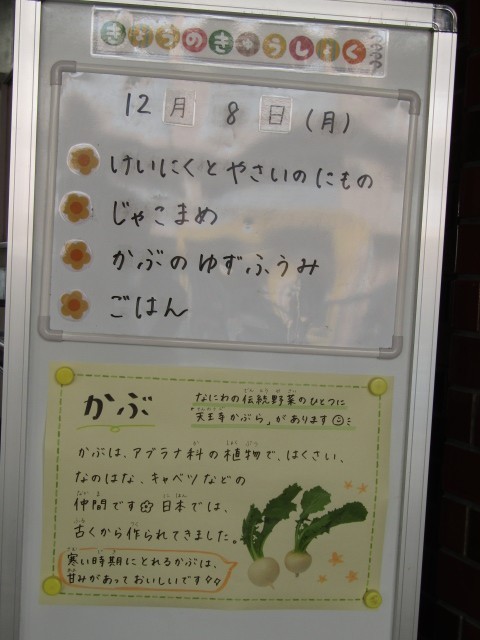 きょうのきゅうしょく
12月 8日(月)
けいにくとやさいのにもの
じゃこまめ
かぶのゆずふうみ
ごはん
かぶ
なにわの伝統野菜のひとつに
「天王寺かぶら」があります
かぶは、アブラナ科の植物で、はくさい、
なのはな、キャベツなどの
仲間です 日本では、
古くから作られてきました。
寒い時期にとれるかぶは、
甘みがあっておいしいです